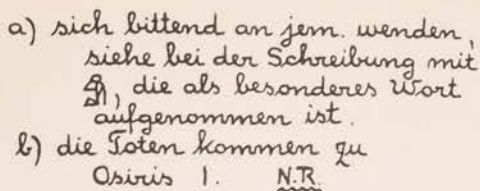 a) sich bittend an jem. wenden,
siehe bei der Schreibung mit
, die als besonderes Wort
aufgenommen ist.
b) die Toten kommen zu
Osiris 1. N.R.